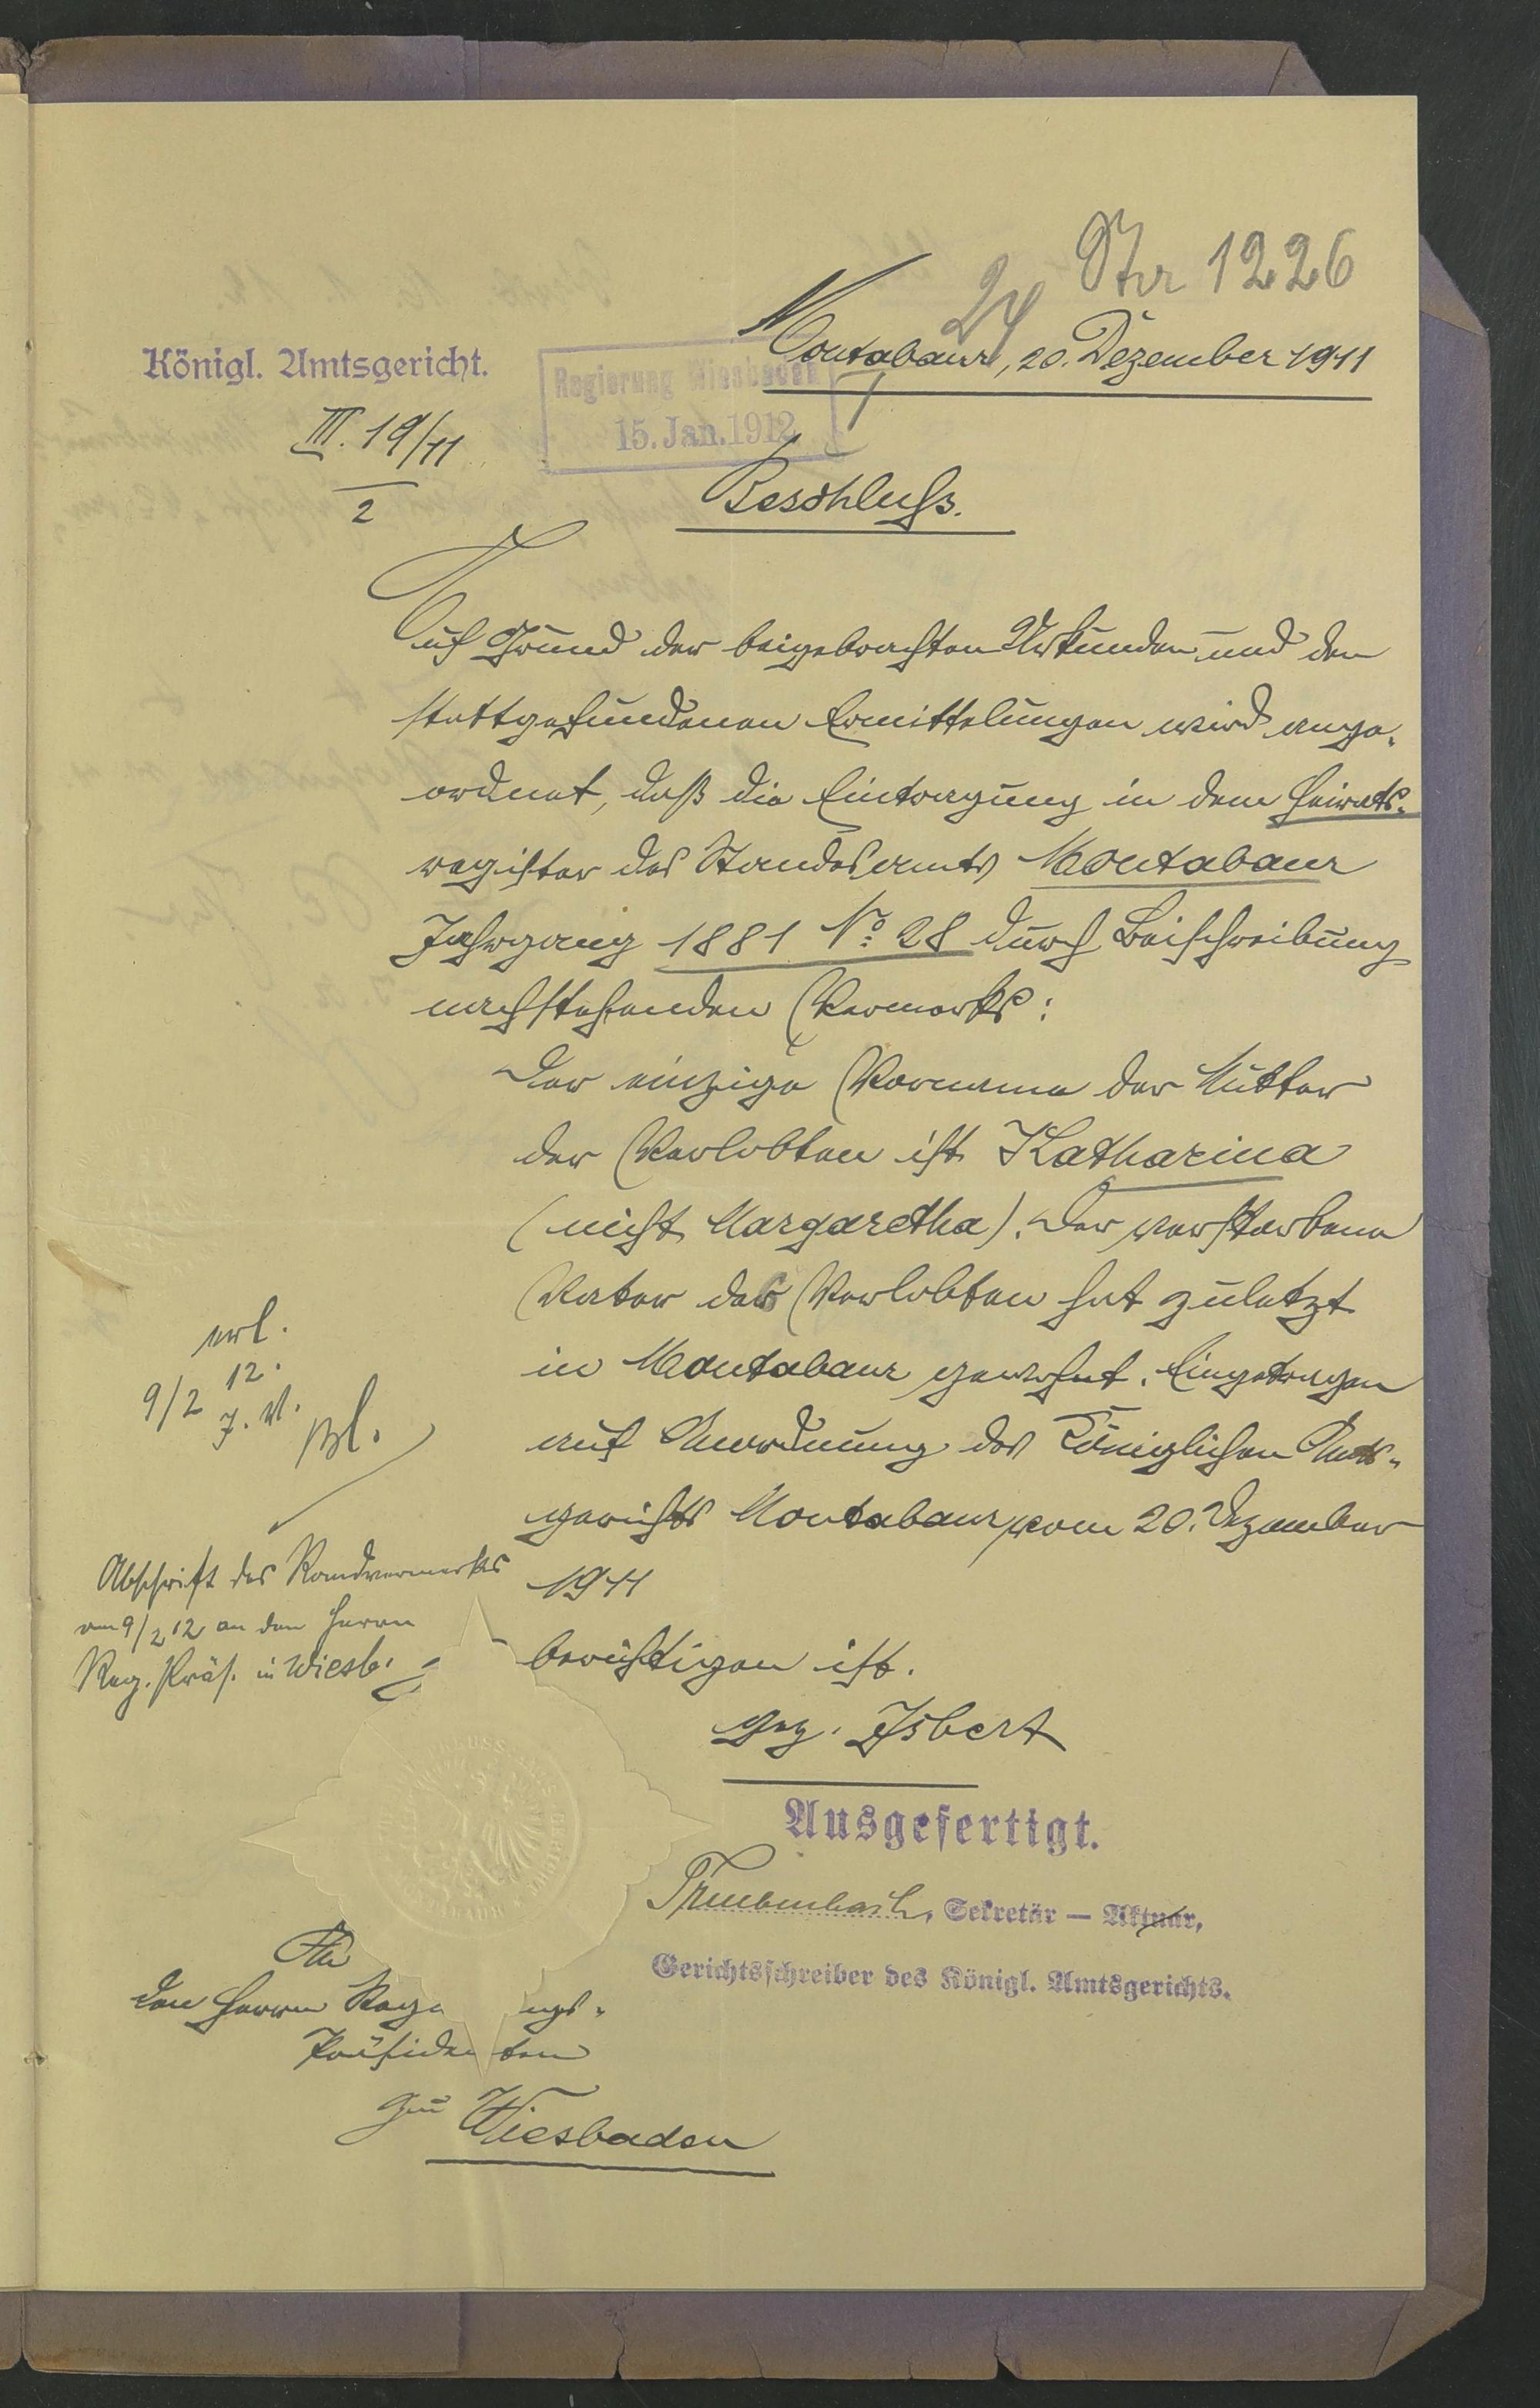 Str 1226
24
Montabaur, 20. Dezember 1911
Königl. Amtsgericht.
III. 19/11
2
Regierung Wiesbaden
15. Jan. 1912
Beschluss.
Auf Grund der beigebrachten Urkunden und den
stattgefundenen Ermittelungen wird ange-
ordnet, daß die Eintragung in dem Heirats-
register des Standesamts Montabaur
Jahrgang 1881 No: 28 durch Beischreibung
nachstehenden Vermerks:
Der einzige Vorname der Mutter
der Verlobten ist Katharina
(nicht Margaretha). Der verstorbene
Vater des Verlobten hat zuletzt
in Montabaur gewohnt. Eingetragen
auf Anordnung des Königlichen Amts-
gerichts Montabaur vom 20. Dezember
1911
berichtigen ist.
gez. Isbert
erl.
9/2 12.
Abschrift des Randvermerks
am 9/2 12 an den Herrn
Reg. Präs. in Wiesb.
Ausgefertigt.
Sekretär — Aktuar,
Gerichtsschreiber des Königl. Amtsgerichts.
An
den Herrn Regie ungs-
Präsiden ten
zu Wiesbaden